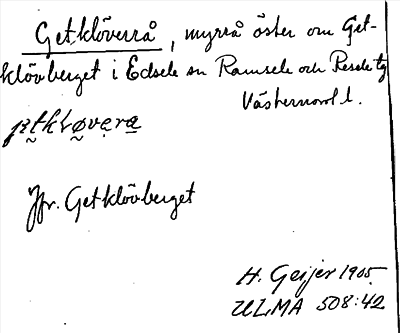 Getklöverrå, myrrå öster om Get-
klövberget i Edsele sn Ramsele och Resele tg
Västernorrl l.
Jfr. Getklövberget
H. Geijer 1905.
ULMA 508:42